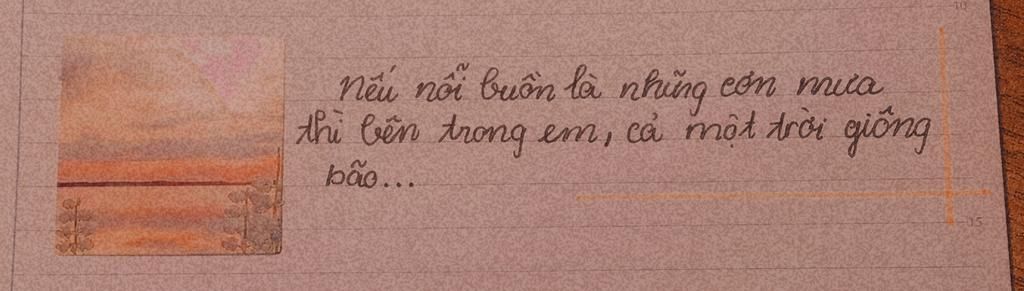 Nếu nỗi buồn là những cơn mưa
thì bên trong em, cả một trời giông
bão...
10
15